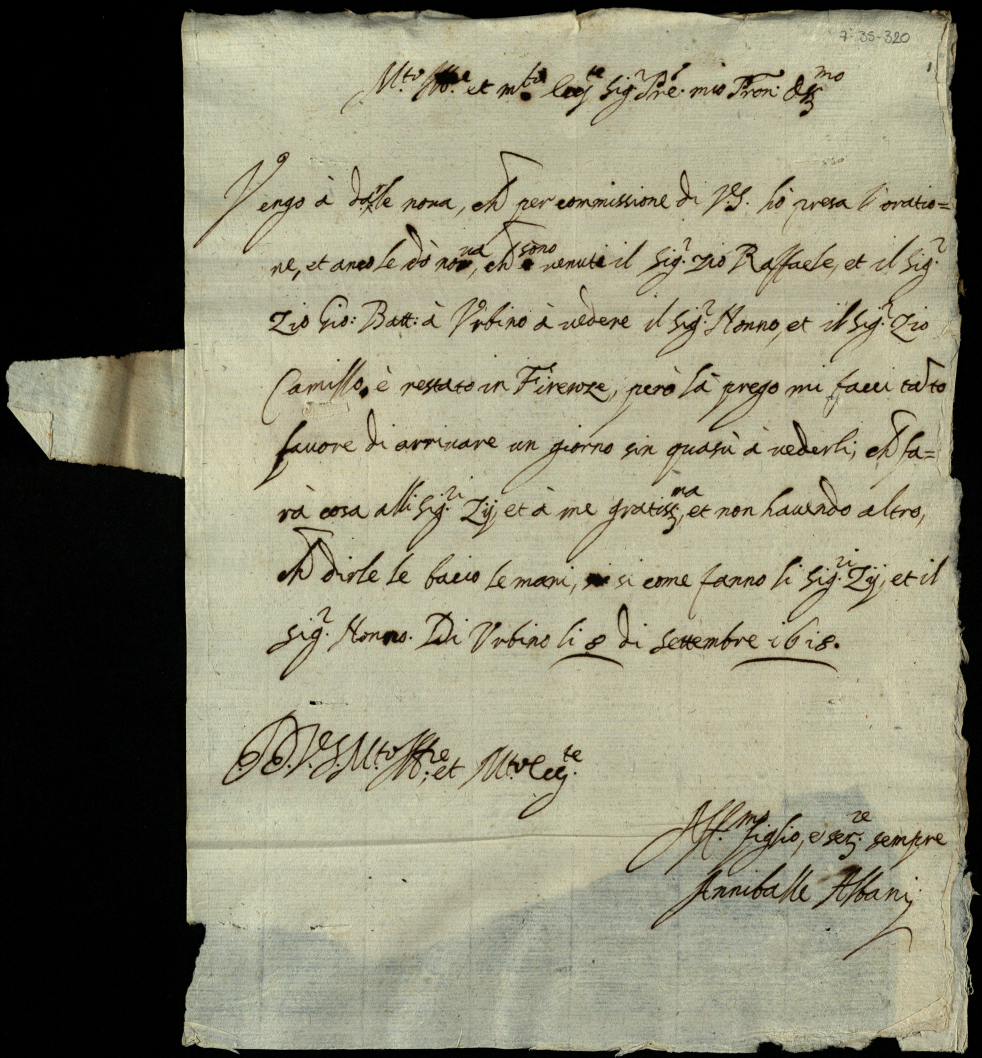 7-35-320
1
M.to Ill.re et m.to ecc.te Sig.r P.re mio Pron. oss.mo
Vengo à darle nova, ch̃ per commissione di V.S. hò presa l'oratio=
ne, et anco le dò nova, ch̃ sono venuti il Sig.r Zio Raffaele, et il Sig.r
Zio Gio: Batt: à Vrbino à vedere il Sig.r Nonno, et il Sig.r Zio
Camillo, è restato in Firenze, però la prego mi facci tãto
favore di arrivare un giorno sin quasù à vederli, ch̃ fa=
rà cosa alli Sig.ri Zij, et à me gratiss.ma, et non havendo altro,
ch̃ dirle le bacio le mani, si come fanno li Sig.ri Zij, et il
Sig.r Nonno. Di Vrbino li 8 di Settembre 1618.
D. V.S. M.to Ill.re, et M.to ecc.te
Aff.mo figlio, e ser.re sempre
Anniballe Albani